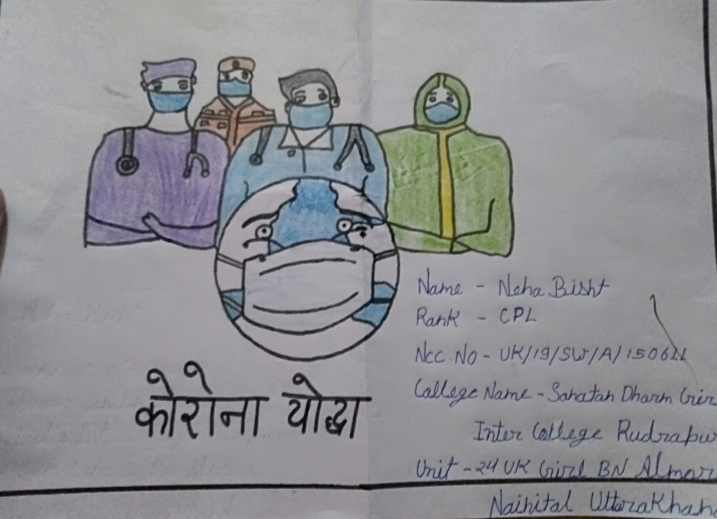 कोरोना योद्धा
Name - Neha Bisht
Rank - CPL
Ncc No - UK/19/SW/A/150611
College Name - Sanatan Dharm
Inter College Rudrapu
Unit - 24 UK Girl BN Almor
Nainital Uttarakhan